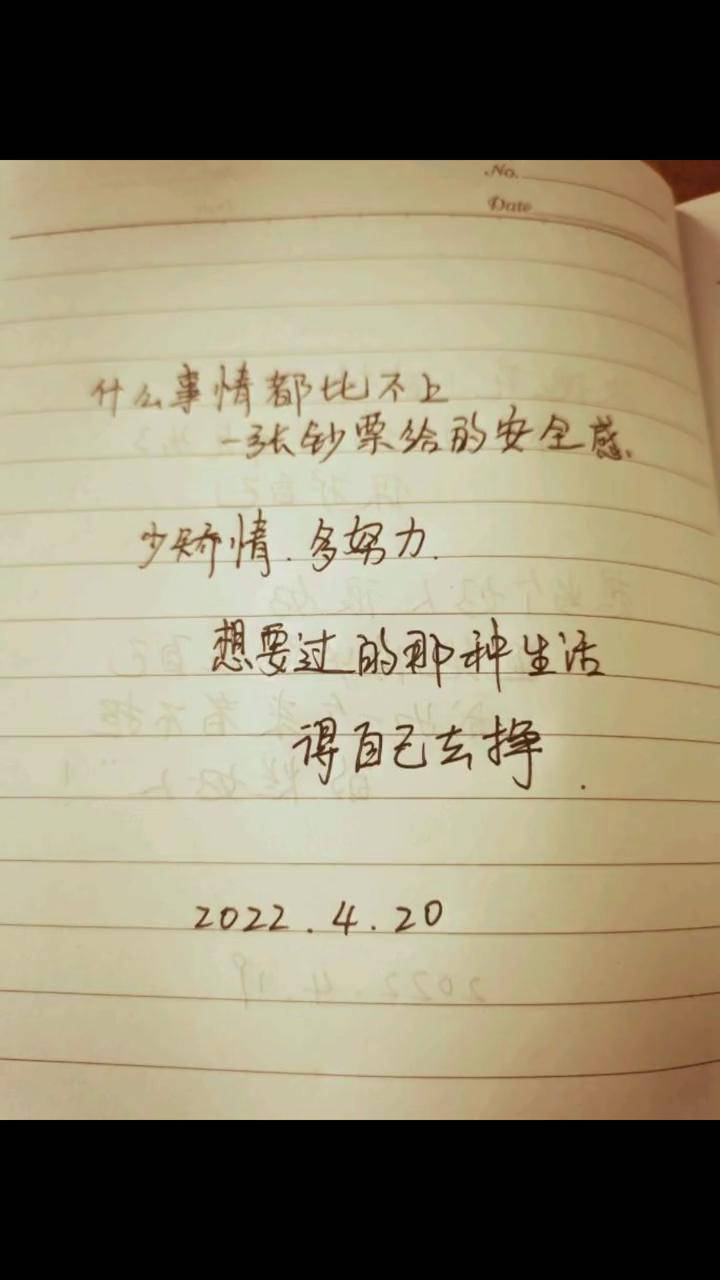 No.
Date
什么事情都比不上
一张钞票给的安全感.
少矫情.多努力.
想要过的那种生活
得自己去挣.
2022.4.20
2022.4.19